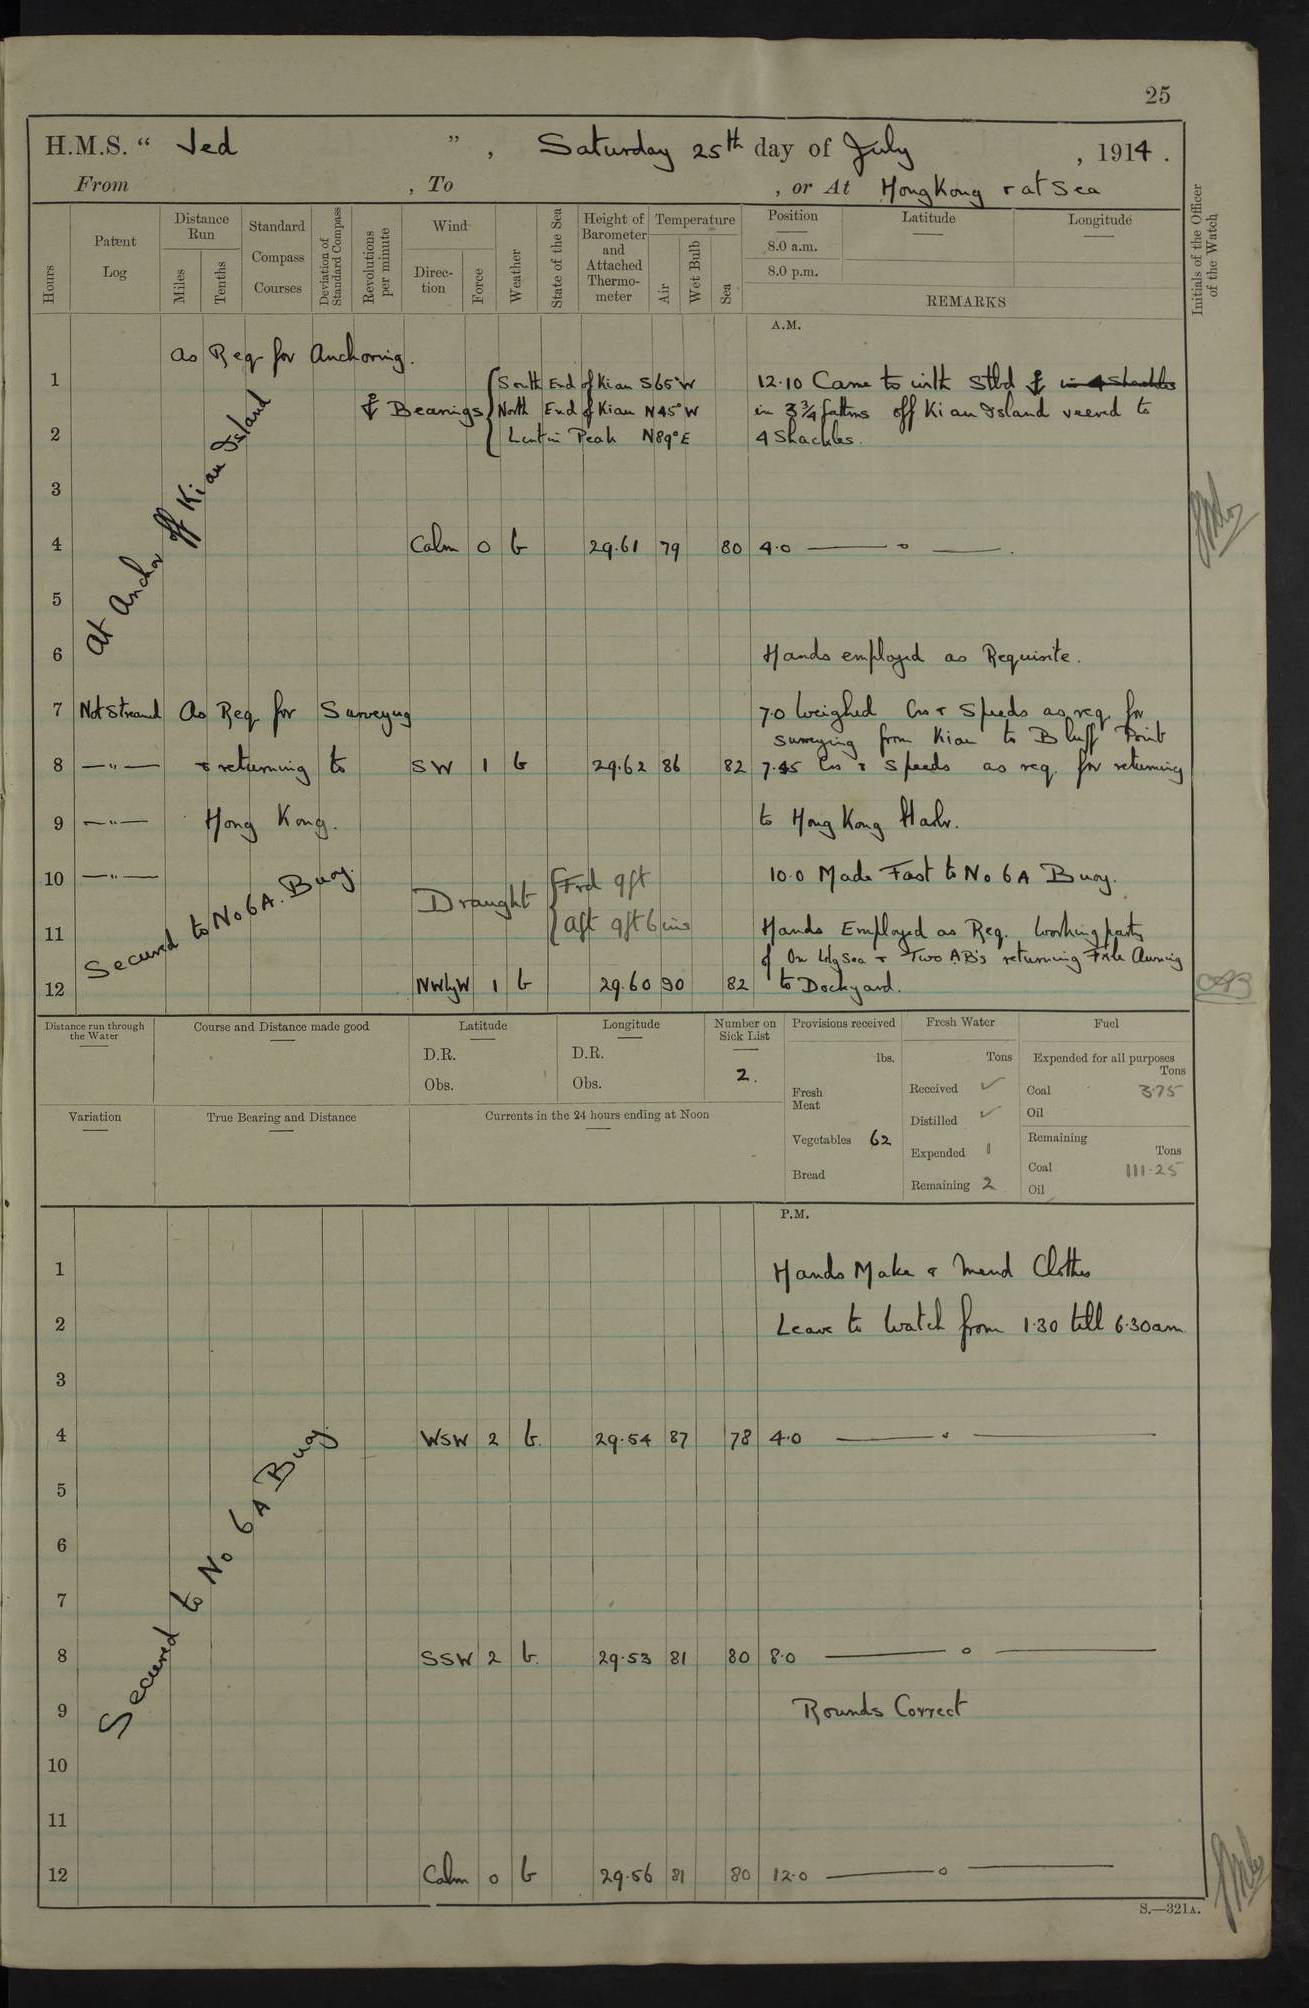 25
H.M.S. “ Jed ” , Saturday 25th day of July , 1914 .
From , To , or At Hong Kong & at Sea
Hours
Patent Log
Distance Run
Miles
Tenths
Standard Compass Courses
Deviation of Standard Compass
Revolutions per minute
Wind
Direc-tion
Force
Weather
State of the Sea
Height of Barometer and Attached Thermo-meter
Temperature
Air
Wet Bulb
Sea
Position
8.0 a.m.
8.0 p.m.
Latitude
Longitude
REMARKS
Initials of the Officer of the Watch
A.M.
As Req for Anchoring.
1 South End of Kiau S65°W 12.10 Came to with Stbd ⚓ in 4 shackles
⚓ Bearings North End of Kiau N45°W in 3¾ fathms off Kiau Island veered to
2 Lintin Peak N89°E 4 Shackles.
At Anchor off Kiau Island
3
4 Calm 0 b 29.61 79 80 4.0 —— " ——.
5
6 Hands employed as Requisite.
7 Not Streamed As Req for Surveying 7.0 Weighed Cos & Speeds as req for
surveying from Kiau to Bluff Point
8 —"— & returning to SW 1 b 29.62 86 82 7.45 Cos & Speeds as req. for returning
9 —"— Hong Kong. to Hong Kong Harbr.
10 —"— 10.0 Made Fast to No 6A Buoy.
Secured to No 6A. Buoy.
Draught Frd 9ft
Aft 9ft 6 ins
11 Hands Employed as Req. Working party
of One Ldg Sea & Two AB's returning Awning
12 NWbyW 1 b 29.60 90 82 to Dockyard.
Distance run through the Water
Course and Distance made good
Latitude
D.R.
Obs.
Longitude
D.R.
Obs.
Number on Sick List
2.
Variation
True Bearing and Distance
Currents in the 24 hours ending at Noon
Provisions received
lbs.
Fresh Meat
Vegetables 62
Bread
Fresh Water
Tons
Received ✓
Distilled ✓
Expended 1
Remaining 2
Fuel
Expended for all purposes
Tons
Coal 3.75
Oil
Remaining
Tons
Coal 111.25
Oil
P.M.
1 Hands Make & Mend Clothes
2 Leave to Watch from 1.30 till 6.30am
3
4 WSW 2 b. 29.54 87 78 4.0 —— " ——
5
6
7
8 SSW 2 b. 29.53 81 80 8.0 —— o ——
Secured to No 6A Buoy.
9 Rounds Correct
10
11
12 Calm 0 b 29.56 81 80 12.0 —— o ——
S.—321A.